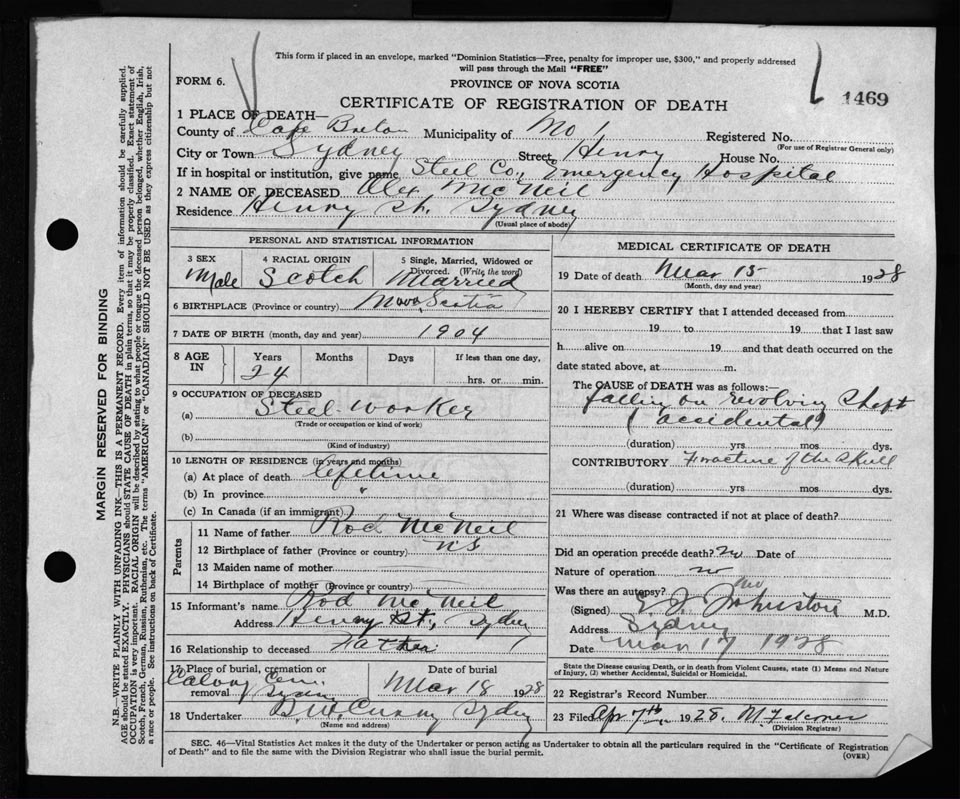 This form if placed in an envelope, marked "Dominion Statistics—Free, penalty for improper use, $300," and properly addressed
will pass through the Mail "FREE"
FORM 6.
PROVINCE OF NOVA SCOTIA
1469
CERTIFICATE OF REGISTRATION OF DEATH
1 PLACE OF DEATH—
County of Cape Breton Municipality of No 1 Registered No.
(For use of Registrar General only)
City or Town Sydney Street Henry House No.
If in hospital or institution, give name Steel Co., Emergency Hospital
2 NAME OF DECEASED Alex McNeil
Residence Henry St. Sydney
(Usual place of abode)
PERSONAL AND STATISTICAL INFORMATION
3 SEX 4 RACIAL ORIGIN 5 Single, Married, Widowed or
Divorced. (Write the word)
Male Scotch Married
6 BIRTHPLACE (Province or country) Nova Scotia
7 DATE OF BIRTH (month, day and year) 1904
8 AGE IN Years Months Days If less than one day,
24 hrs. or min.
9 OCCUPATION OF DECEASED
(a) Steel Worker
(Trade or occupation or kind of work)
(b)
(Kind of industry)
10 LENGTH OF RESIDENCE (in years and months)
(a) At place of death Lifetime
(b) In province "
(c) In Canada (if an immigrant)
Parents
11 Name of father Rod McNeil
12 Birthplace of father (Province or country) N S
13 Maiden name of mother
14 Birthplace of mother (Province or country)
15 Informant's name Rod McNeil
Address Henry St., Sydney
16 Relationship to deceased Father
17 Place of burial, cremation or Date of burial
removal Calvary Cem. Sydney Mar 18 1928
18 Undertaker B. W. Curry Sydney
(Name and address)
MEDICAL CERTIFICATE OF DEATH
19 Date of death Mar 15 1928
(Month, day and year)
20 I HEREBY CERTIFY that I attended deceased from
19 to 19 that I last saw
h alive on 19 and that death occurred on the
date stated above, at m.
The CAUSE of DEATH was as follows:—
falling on revolving Shaft
(accidental)
(duration) yrs mos dys.
CONTRIBUTORY Fracture of the Skull
(duration) yrs mos dys.
21 Where was disease contracted if not at place of death?
Did an operation precede death? no Date of
Nature of operation no
Was there an autopsy? no
(Signed) Johnston M.D.
Address Sydney
Date Mar 17 1928
State the Disease causing Death, or in death from Violent Causes, state (1) Means and Nature
of Injury, (2) whether Accidental, Suicidal or Homicidal.
22 Registrar's Record Number
23 Filed Apr 7th 1928. M Falconer
(Division Registrar)
SEC. 46—Vital Statistics Act makes it the duty of the Undertaker or person acting as Undertaker to obtain all the particulars required in the "Certificate of Registration
of Death" and to file the same with the Division Registrar who shall issue the burial permit.
(OVER)
MARGIN RESERVED FOR BINDING
N.B.—WRITE PLAINLY WITH UNFADING INK—THIS IS A PERMANENT RECORD. Every item of information should be carefully supplied.
AGE should be stated EXACTLY. PHYSICIANS should STATE CAUSE OF DEATH in plain terms, so that it may be properly classified. Exact statement of
OCCUPATION is very important. RACIAL ORIGIN will be described by stating to what people or tongue the deceased person belonged, whether English, Irish,
Scotch, French, German, Russian, Ruthenian, etc. The terms "AMERICAN" or "CANADIAN" SHOULD NOT BE USED as they express citizenship but not
a race or people. See instructions on back of Certificate.